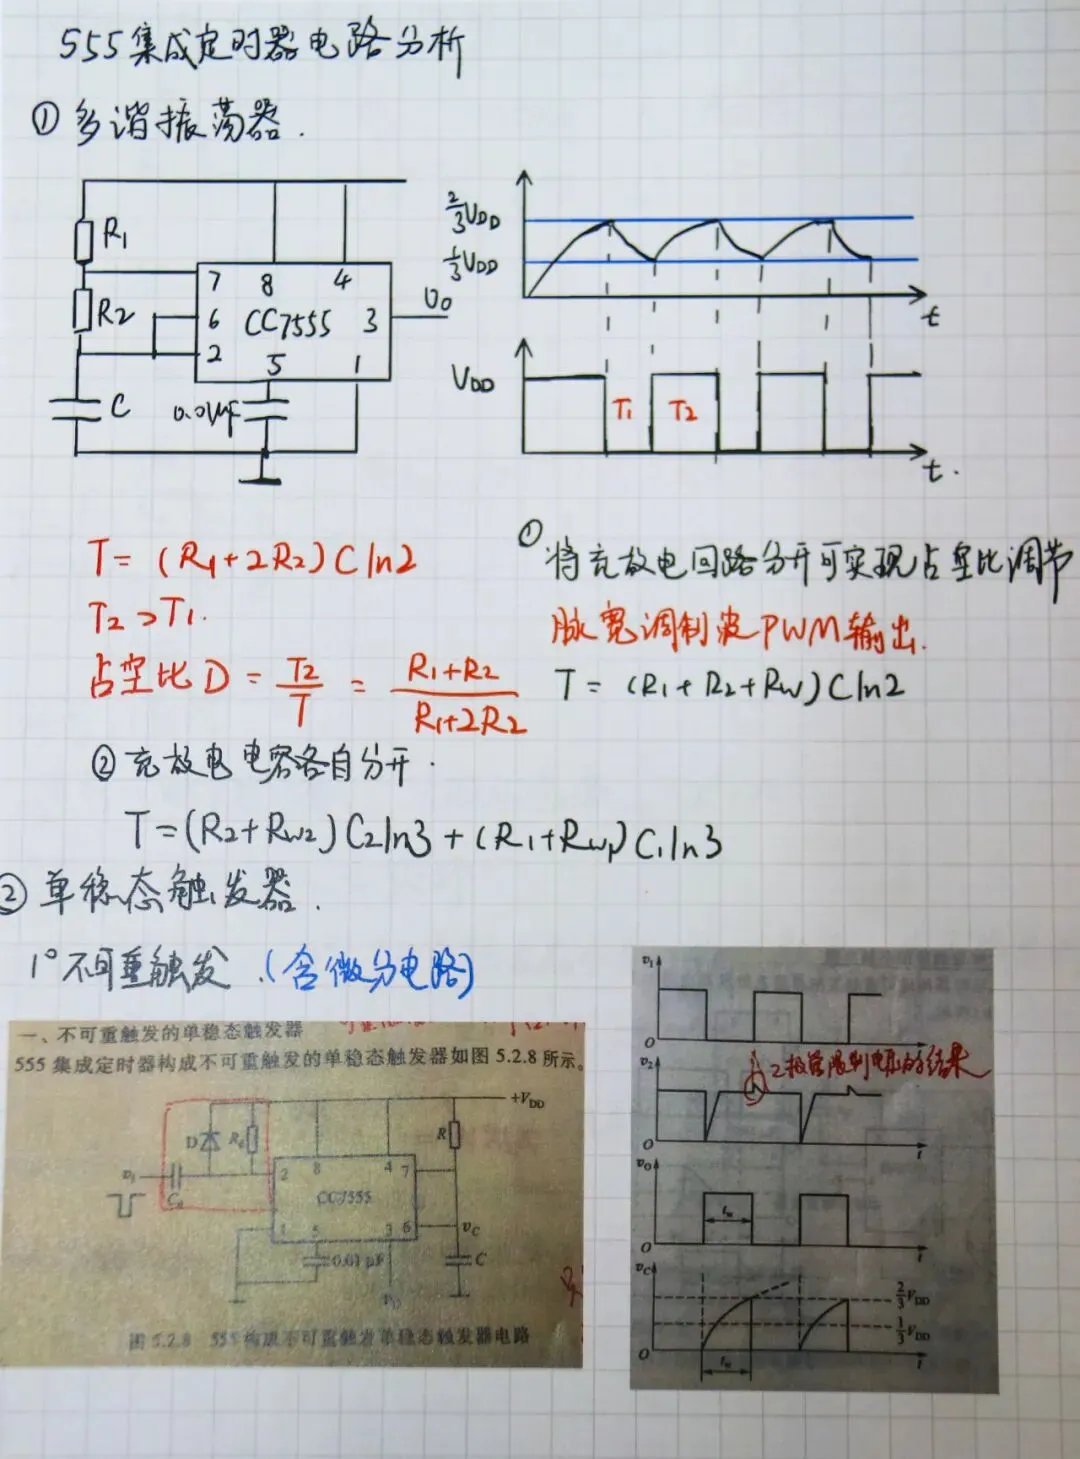 555集成定时器电路分析
①多谐振荡器.
R1
R2
C
7
8
4
6
CC7555
3
2
5
1
Uo
0.01μF
2/3VDD
1/3VDD
t
VDD
T1
T2
t.
T = (R1+2R2)Cln2
T2>T1.
占空比D = T2/T = (R1+R2)/(R1+2R2)
①将充放电回路分开可实现占空比调节
脉宽调制波PWM输出.
T = (R1+R2+RW)Cln2
②充放电电容各自分开.
T=(R2+RW2)C2ln3+(R1+RW1)C1ln3
②单稳态触发器.
1°不可重触发.(含微分电路)
一、不可重触发的单稳态触发器
555集成定时器构成不可重触发的单稳态触发器如图5.2.8所示。
+VDD
D
Rd
R
vI
Cd
2
8
4
7
CC7555
1
5
3
6
vC
0.01 μF
C
vO
图5.2.8 555构成不可重触发单稳态触发器电路
v1
O
t
v2
二极管限制电压的结果
O
t
vO
tw
O
t
vC
2/3VDD
1/3VDD
O
tw
t